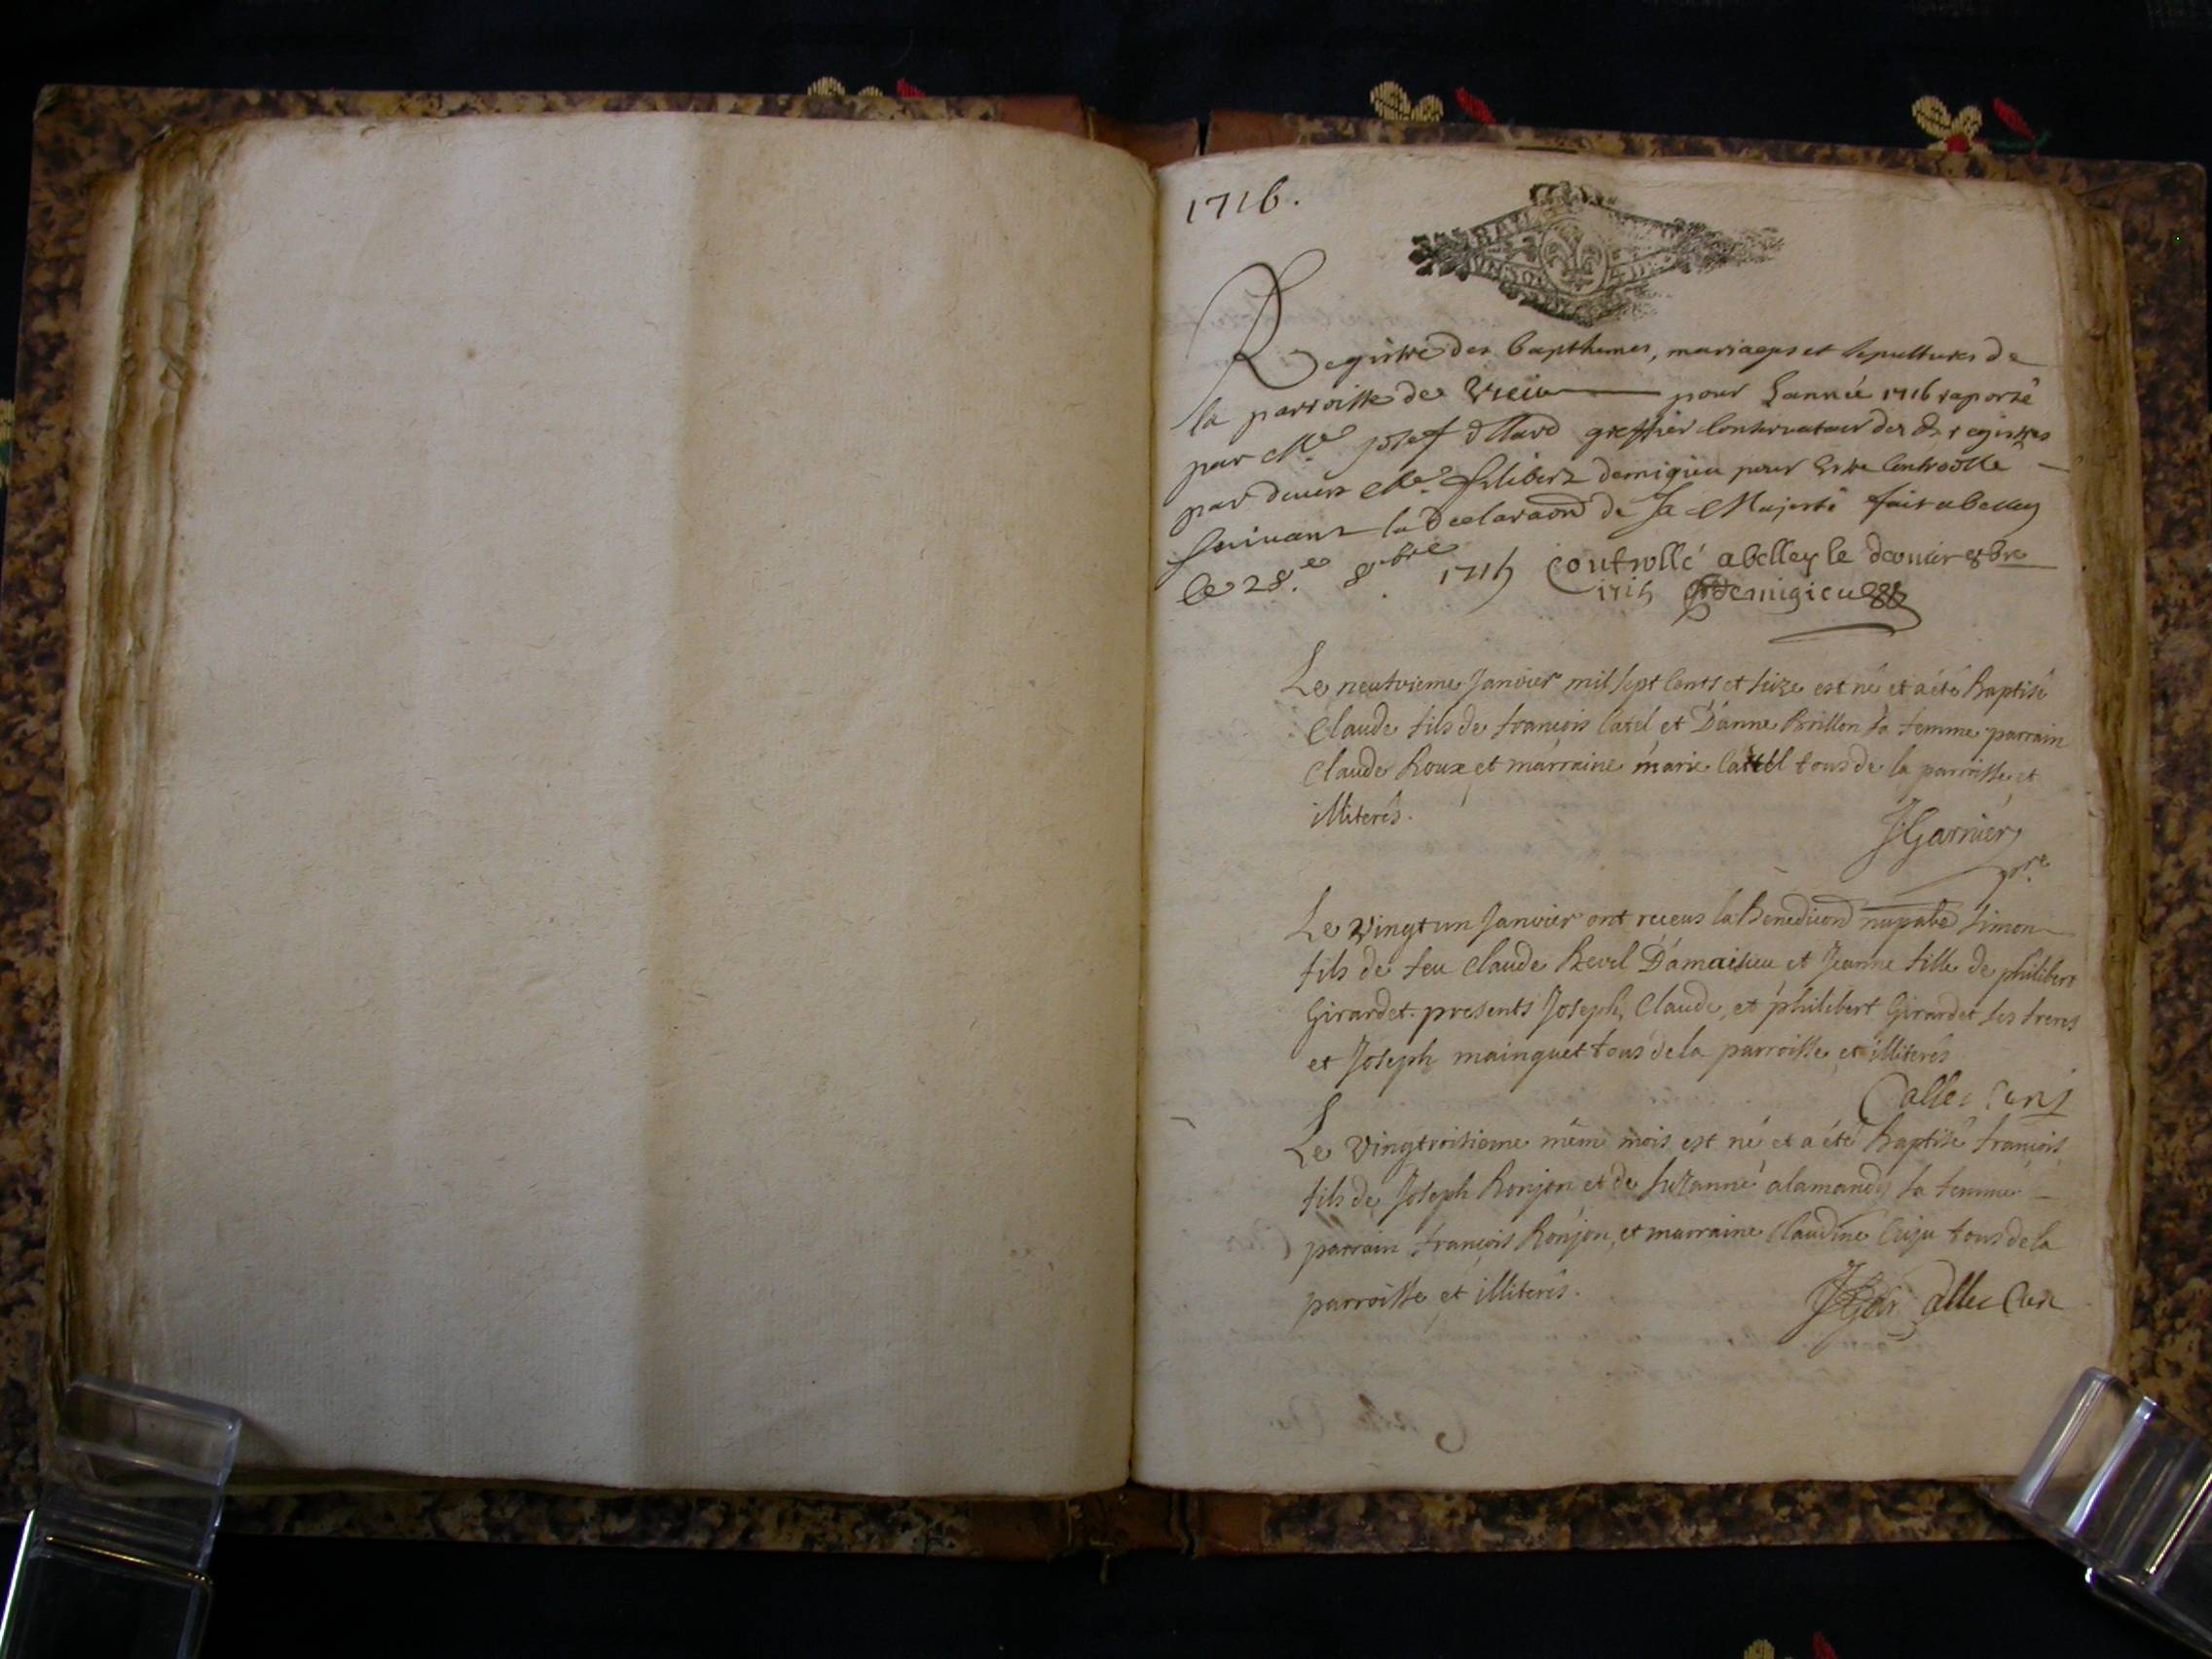 1716.
Registre des bapthemes, mariages et sepultures de
la parroisse de Vieiu pour L'année 1716 raporté
par Me. josef greffier Conservateur des d. registres
par devers Me. filibert demigieu pour Estre Controollé
suivant la Declaraon de Sa Majesté fait a belley
le 28.e 8.bre 1715 Controllé a belley le dernier 8bre
1715 Demigieu
Le neufvieme Janvier mil sept Cents et seize est né et a été Baptisé
Claude fils de francois Catel et D'anne Brillon sa femme parrain
Claude Roux et marraine marie Catel tous de la parroisse et
illiterés.
J Garnier
pre.
Le Vingt un Janvier ont receus la Benediction nuptale Simon
fils de feu Claude Revel D'amaisieu et Jeanne fille de philibert
Girardet. presents Joseph, Claude, et philibert Girardet ses freres
et Joseph mainguet tous de la parroisse et illiterés
Callec Curé
Le Vingtroisieme même mois est né et a été Baptisé francois
fils de Joseph Ronjon et de Suzanne alamandy sa femme
parrain francois Ronjon, et marraine Claudine Cuju tous de la
parroisse et illiterés.